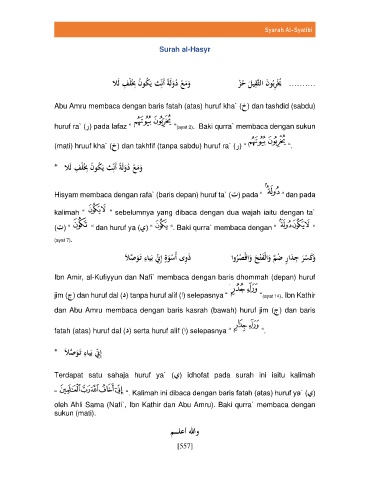 Syarah Al-Syatibi
Surah al-Hasyr
.......... يُخْرِبُوْنَ الثَّقِيلَ حُزْ وَمَعْ دُوْلَةً أَنِّثْ يَكُوْنَ بِخُلْفٍ لَا
Abu Amru membaca dengan baris fatah (atas) huruf kha` (خ) dan tashdid (sabdu)
huruf ra` (ر) pada lafaz " يُخَرِّبُوْنَ بُيُوْتَهُمْ " (ayat 2). Baki qurra` membaca dengan sukun
(mati) hruuf kha` (خ) dan takhfif (tanpa sabdu) huruf ra` (ر) " يُخْرِبُوْنَ بُيُوْتَهُمْ ".
* وَمَعْ دُوْلَةً أَنِّثْ يَكُوْنَ بِخُلْفٍ لَا
Hisyam membaca dengan rafa` (baris depan) huruf ta` (ت) pada " دُوْلَةٌ " dan pada
kalimah " لَا يَكُوْنَ " sebelumnya yang dibaca dengan dua wajah iaitu dengan ta`
(ت) " تَكُوْنَ " dan huruf ya (ي) " يَكُوْنَ ". Baki qurra` membaca dengan " لَا يَكُوْنَ دُوْلَةً "
(ayat 7).
وَكَسْرَ جِدَارٍ ضُمَّ وَالْفَتْحَ وَاقْصُرُوا ذَوِى أُسْوَةٍ إِنِّيْ بِيَاءٍ تَوَصَّلَا
Ibn Amir, al-Kufiyyun dan Nafi` membaca dengan baris dhommah (depan) huruf
jim (ج) dan huruf dal (د) tanpa huruf alif (ا) selepasnya " وَرَآءِ جُدُرٍ " (ayat 14). Ibn Kathir
dan Abu Amru membaca dengan baris kasrah (bawah) huruf jim (ج) dan baris
fatah (atas) huruf dal (د) serta huruf alif (ا) selepasnya " وَرَآءِ جِدَارٍ ".
* إِنِّيْ بِيَاءٍ تَوَصَّلَا
Terdapat satu sahaja huruf ya` (ي) idhofat pada surah ini iaitu kalimah
" إِنِّىٓ أَخَافُ ٱللَّهَ رَبَّ ٱلْعَـٰلَمِينَ ". Kalimah ini dibaca dengan baris fatah (atas) huruf ya` (ي)
oleh Ahli Sama (Nafi`, Ibn Kathir dan Abu Amru). Baki qurra` membaca dengan
sukun (mati).
والله أعلم
[557]